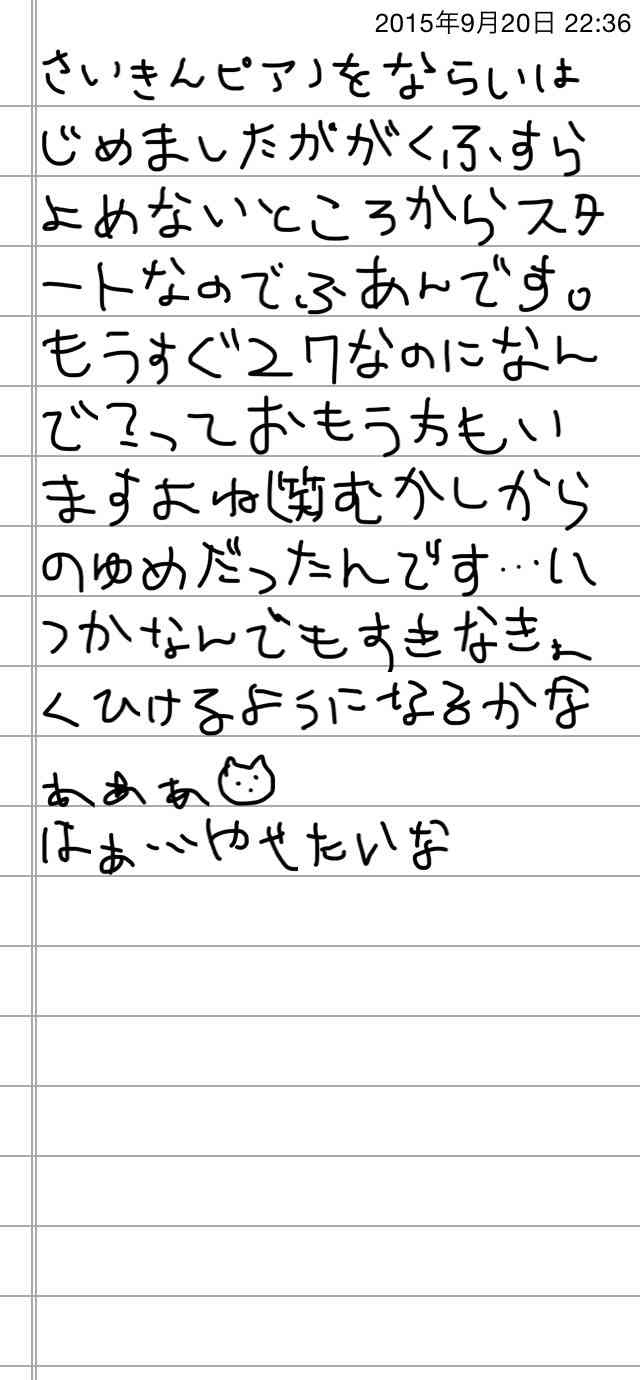 2015年9月20日 22:36
さいきんピアノをならいは
じめましたががくふすら
よめないところからスタ
ートなのでふあんです。
もうすぐ27なのになん
で?っておもうかもい
ますよね(笑むかしから
のゆめだったんです…い
つかなんでもすきなきょ
くひけるようになるかな
ぁぁぁ
はぁ…やせたいな